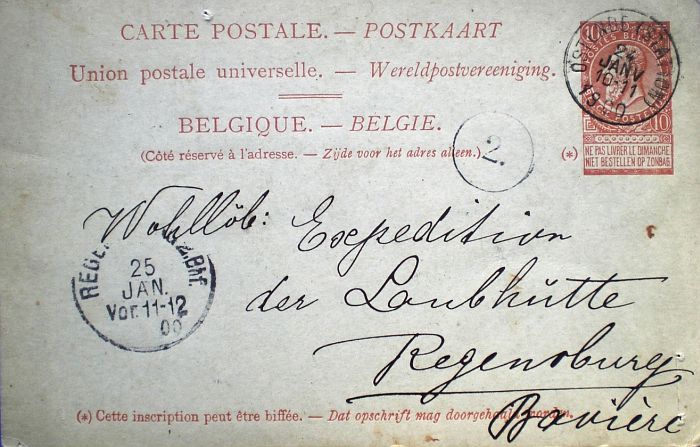 CARTE POSTALE. — POSTKAART
Union postale universelle. — Wereldpostvereeniging.
BELGIQUE. — BELGIE.
(Côté réservé à l'adresse. — Zijde voor het adres alleen.)
(*)
10 10
POSTES BELGES
10
NE PAS LIVRER LE DIMANCHE
NIET BESTELLEN OP ZONDAG
OSTENDE
24
JANV
10-11
2.
Wohllöb: Expedition
der Laubhütte
Regensburg
Bavière
25
JAN.
Vor. 11-12
00
(*) Cette inscription peut être biffée. — Dat opschrift mag doorgehaald worden.